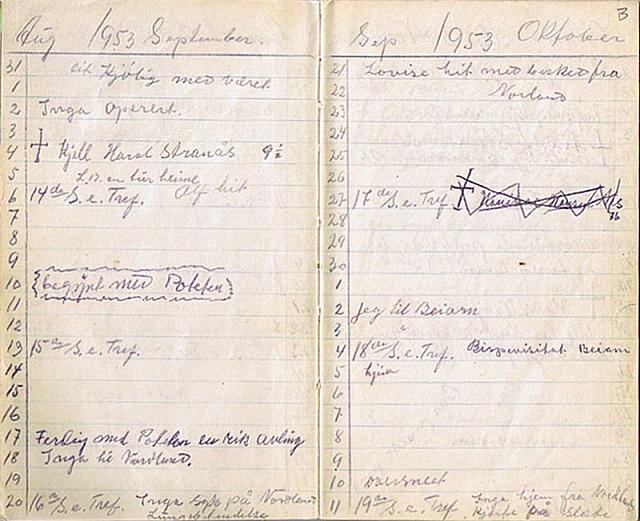 Aug 1953 September.
31 litt Kjølig med været
1
2 Inga operert.
3
4 Kjell Haral Stranås 9½
5 en tur heime
6 14de S. e. Tref. Alf hit
7
8
9
10 begynt med Poteten
11
12
13 15de S. e. Tref.
14
15
16
17 Ferdig med Poteten en rik avling
18 Inga til Nordland.
19
20 16de S. e. Tref. Inga syk på Nordland
3
Sep 1953 Oktober
21 Lovise hit med besket fra
22 Norland
23
24
25
26
27 17de S. e. Tref
28
29
30
1
2 Jeg til Beiarn
3
4 18de S. e. Tref. Bispevisitas Beiarn
5 hjem
6
7
8
9
10
11 19de S. e. Tref. Inga hjem fra Nordland